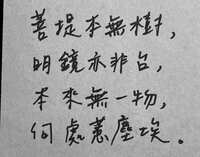 菩提本無樹，
明鏡亦非台，
本來無一物，
何處惹塵埃。